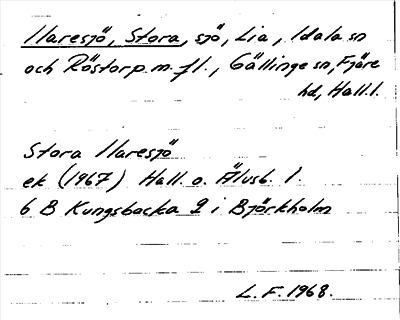 Haresjö, Stora, sjö, Lia, Idala sn
och Röstorp m. fl., Gällinge sn, Fjäre
hd, Hall. l.
Stora Haresjö
ek (1967) Hall. o. Älvsb. l.
6 B Kungsbacka 2 i Björkholm
L. F. 1968.